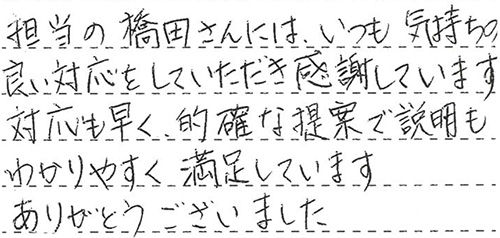 担当の橋田さんには、いつも気持ちの
良い対応をしていただき感謝しています
対応も早く、的確な提案で説明も
わかりやすく満足しています
ありがとうございました